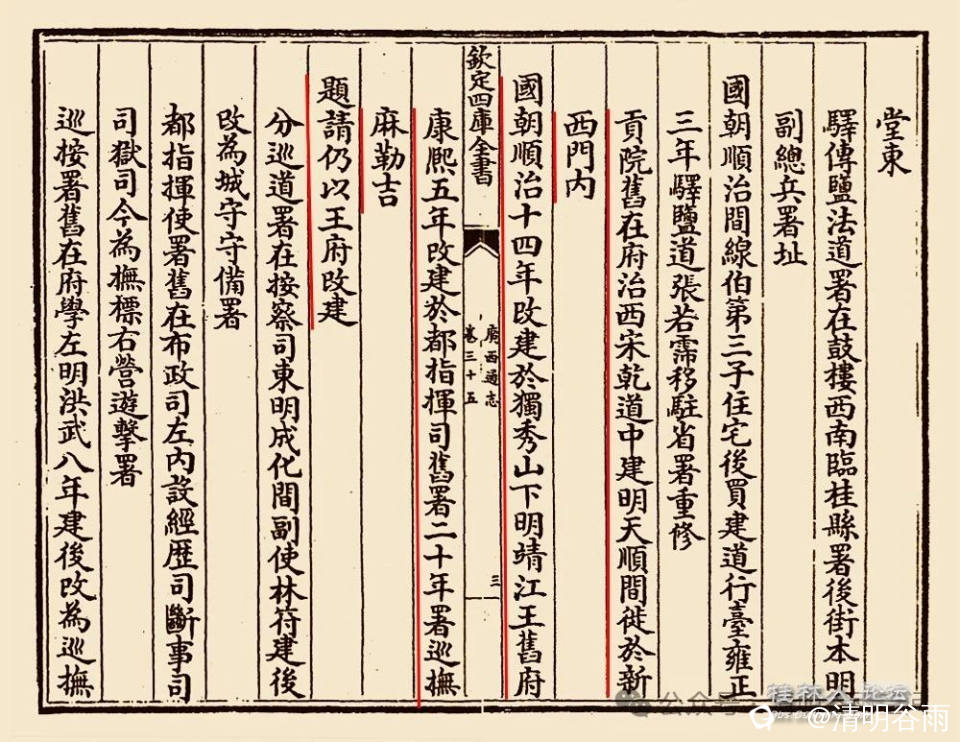 堂東
驛傳鹽法道署在鼓樓西南臨桂縣署後街本明
副總兵署址
國朝順治間線伯第三子住宅後買建道行臺雍正
三年驛鹽道張若霈移駐省署重修
貢院舊在府治西宋乾道中建明天順間徙於新
西門內
國朝順治十四年改建於獨秀山下明靖江王舊府
欽定四庫全書
廣西通志
卷三十五
三
康熙五年改建於都指揮司舊署二十年署巡撫
麻勒吉
題請仍以王府改建
分巡道署在按察司東明成化間副使林符建後
改為城守守備署
都指揮使署舊在布政司左內設經歷司斷事司
司獄司今為撫標右營遊擊署
巡按署舊在府學左明洪武八年建後改為巡撫
公众号
桂林人论坛
@清明谷雨